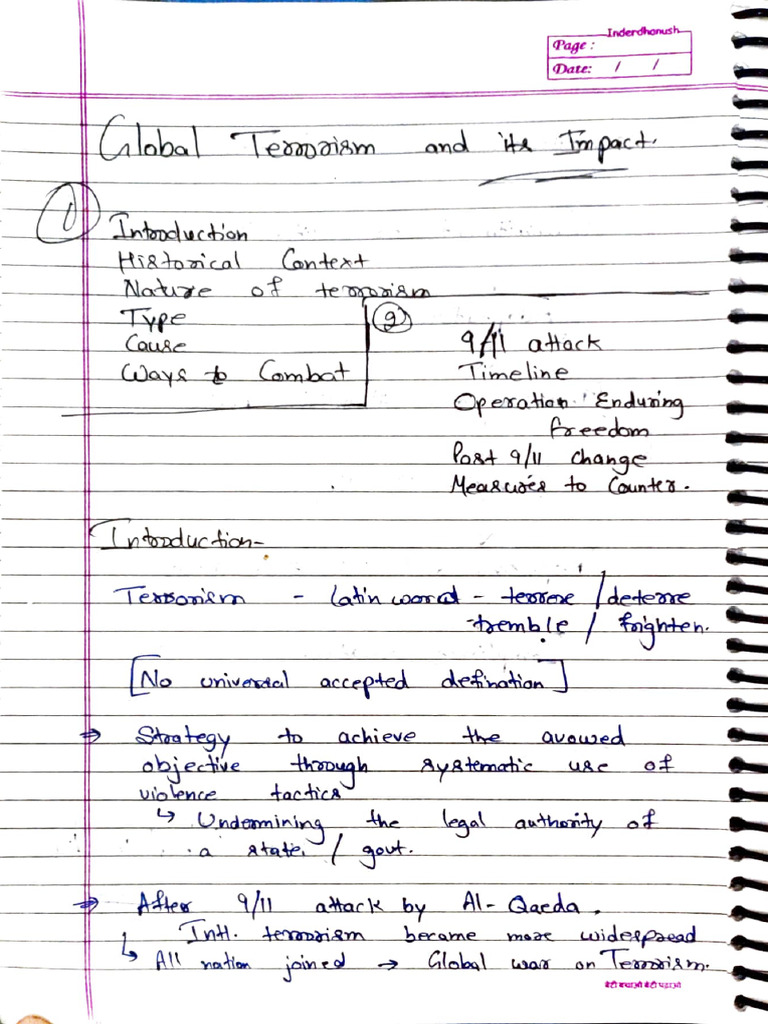 Inderdhanush
Page :
Date: / /
Global Terrorism and its Impact.
1
Introduction
Historical Context
Nature of terrorism
Type
Cause
Ways to Combat
2
9/11 attack
Timeline
Operation Enduring
freedom
Post 9/11 change
Measures to Counter.
Introduction-
Terrorism - Latin word - terrere / deterre
-tremble / frighten.
[No universal accepted defination]
⇒ Strategy to achieve the avowed
objective through systematic use of
violence tactics
↳ Undermining the legal authority of
a state / govt.
⇒ After 9/11 attack by Al-Qaeda.
Intl. terrorism became more widespread
↳ All nation joined → Global war on Terrorism.
बेटी बचाओ बेटी पढ़ाओ